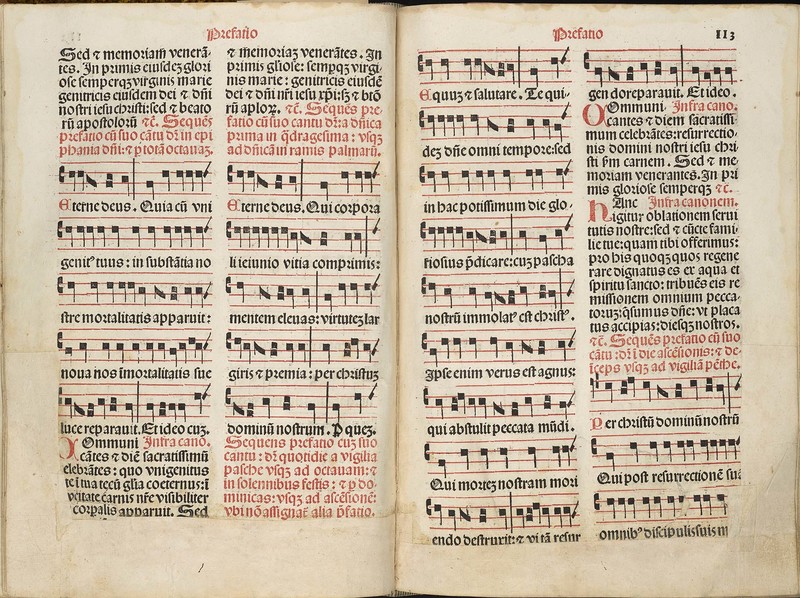 Prefatio
Sed ⁊ memoriam venerā-
tes. In primis eiusdeȝ glori
ose semperqȝ virginis marie
genitricis eiusdem dei ⁊ dn̄i
nostri iesu christi: sed ⁊ beato
rū apostolorū ⁊c̄. Sequēs
prefatio cū suo cātu dr̄ in epi
phania dn̄i: ⁊ p totā octauaȝ.
Eterne deus. Quia cū vni
genitꝰ tuus : in substātia no
stre mortalitatis apparuit :
noua nos īmortalitatis sue
luce reparauit. Et ideo cuȝ.
Communi Infra cano.
cātes ⁊ diem sacratissimū
celebrātes: quo vnigenitus
in tua tecū glīa coeternus: ī
veritate carnis nr̄e visibiliter
corpalis apparuit. Sed
⁊ memoriaȝ venerātes. In
primis gl̄iose: sempqȝ virgi-
nis marie : genitricis eiusdē
dei ⁊ dn̄i nr̄i iesu xp̄i: sȝ ⁊ btō
rū aploꝝ. ⁊c̄. Sequēs pre-
fatio cū suo cantu dr̄: a dn̄ica
prima in q̄dragesima : vsqȝ
ad dn̄icā in ramis palmarū.
Eterne deus. Qui corpora
li ieiunio vitia comprimis:
mentem eleuas: virtuteȝ lar
giris ⁊ premia : per christuȝ
dominū nostrum. P queȝ.
Sequens prefatio cuȝ suo
cantu : dr̄ quotidie a vigilia
pasche vsqȝ ad octauam: ⁊
in solennibus festis : ⁊ p do-
minicas: vsqȝ ad ascēsionē:
vbi nō assignat̄ alia p̄fatio.
Prefatio
113
Equuȝ ⁊ salutare. Te qui-
deȝ dn̄e omni tempore: sed
in hac potissimum die glo-
riosus p̄dicare: cuȝ pascha
nostrū immolatꝰ est christꝰ.
Ipse enim verus est agnus:
qui abstulit peccata mūdi.
Qui morteȝ nostram mori
endo destruxit: ⁊ vitā resur
gendo reparauit. Et ideo.
Communi Infra cano.
cantes ⁊ diem sacratissi-
mum celebrātes: resurrectio-
nis domini nostri iesu chri
sti s̄m carnem. Sed ⁊ me
moriam venerantes. In pri
mis gloriose semperqȝ ⁊c̄.
Hanc Infra canonem.
igitur oblationem serui
tutis nostre: sed ⁊ cūcte fami-
lie tue: quam tibi offerimus:
pro his quoqȝ quos regene
rare dignatus es ex aqua et
spiritu sancto: tribuēs eis re
missionem omnium pecca-
toruȝ: q̄sumus dn̄e: vt placa
tus accipias: diesqȝ nostros.
⁊c̄. Sequēs prefatio cū suo
cātu : dr̄ ī die ascēsionis: ⁊ de-
īceps vsqȝ ad vigiliā pēthe.
Per christū dominū nostrū
Qui post resurrectionē suā
omnibꝰ discipulis suis m